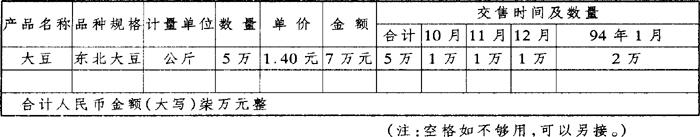 产品名称 品种规格 计量单位 数量 单价 金额 交售时间及数量
合计 10月 11月 12月 94年1月
大豆 东北大豆 公斤 5万 1.40元 7万元 5万 1万 1万 1万 2万
合计人民币金额(大写)柒万元整
(注:空格如不够用,可以另接。)